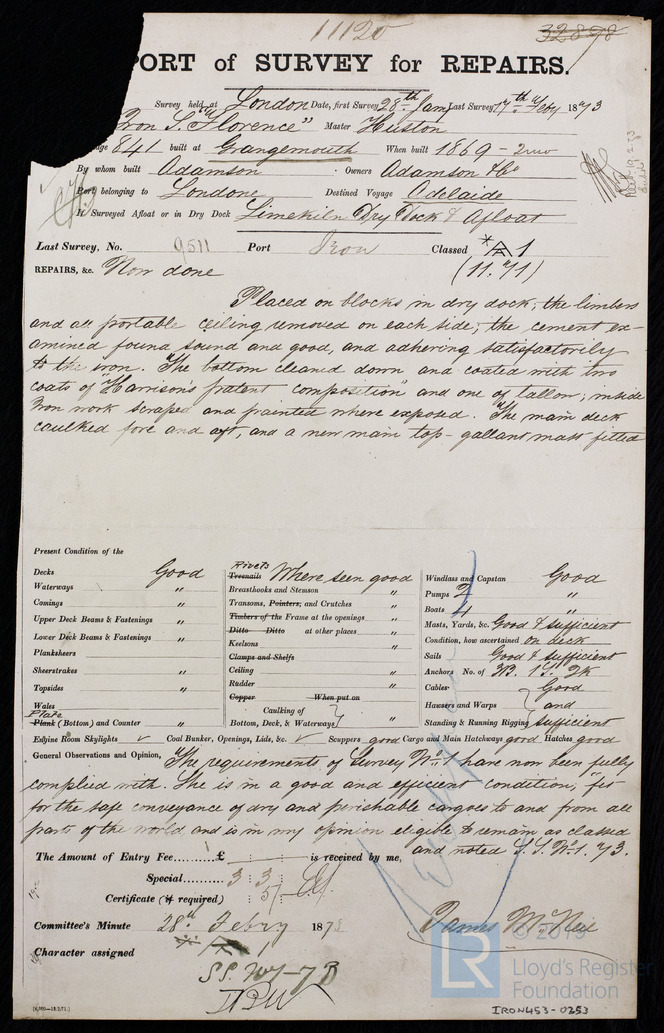 11120
32898
PORT of SURVEY for REPAIRS.
Survey held at London Date, first Survey 28th Jany Last Survey 17th Feby 1873
Iron S. "Florence" Master Huston
841 built at Grangemouth When built 1869 - 2mo
By whom built Adamson Owners Adamson & Co
Port belonging to London Destined Voyage Adelaide
If Surveyed Afloat or in Dry Dock Limekiln Dry Dock & Afloat
Last Survey, No. 9511 Port Iron Classed *A 1
REPAIRS, &c. Now done (11.71)
Placed on blocks in dry dock; the limbers
and all portable ceiling removed on each side; the cement ex-
amined found sound and good, and adhering satisfactorily
to the iron. The bottom cleaned down and coated with two
coats of "Harrison's patent composition" and one of tallow; inside
Iron work scraped and painted where exposed. The main deck
caulked fore and aft, and a new main top-gallant mast fitted
Present Condition of the
Decks Good
Waterways "
Comings "
Upper Deck Beams & Fastenings "
Lower Deck Beams & Fastenings "
Planksheers
Sheerstrakes "
Topsides "
Wales
Plate
Plank (Bottom) and Counter "
Rivets
Treenails Where seen good
Breasthooks and Stemson "
Transoms, Pointers, and Crutches "
Timbers of the Frame at the openings "
Ditto Ditto at other places "
Keelsons "
Clamps and Shelfs
Ceiling "
Rudder "
Copper When put on
Caulking of
Bottom, Deck, & Waterways "
Windlass and Capstan Good
Pumps 2 "
Boats 4 "
Masts, Yards, &c. Good & sufficient
Condition, how ascertained on deck
Sails Good & sufficient
Anchors No. of 3B. 1S. 2K
Cables Good
Hawsers and Warps and
Standing & Running Rigging sufficient
Engine Room Skylights Coal Bunker, Openings, Lids, &c. Scuppers good Cargo and Main Hatchways good Hatches good
General Observations and Opinion, The requirements of Survey No. 1 have now been fully
complied with. She is in a good and efficient condition; fit
for the safe conveyance of dry and perishable cargoes to and from all
parts of the world and is in my opinion eligible to remain as classed
and noted S.S. No. 1. 73.
The Amount of Entry Fee.........£ : : is received by me,
Special.......... 3 : 3 :
Certificate (if required) : 5/
Committee's Minute 28th Febry 1873
James McNeil
Character assigned
S.S. No 1-73
© 2019
LR
Lloyd's Register
Foundation
IRON453-0253